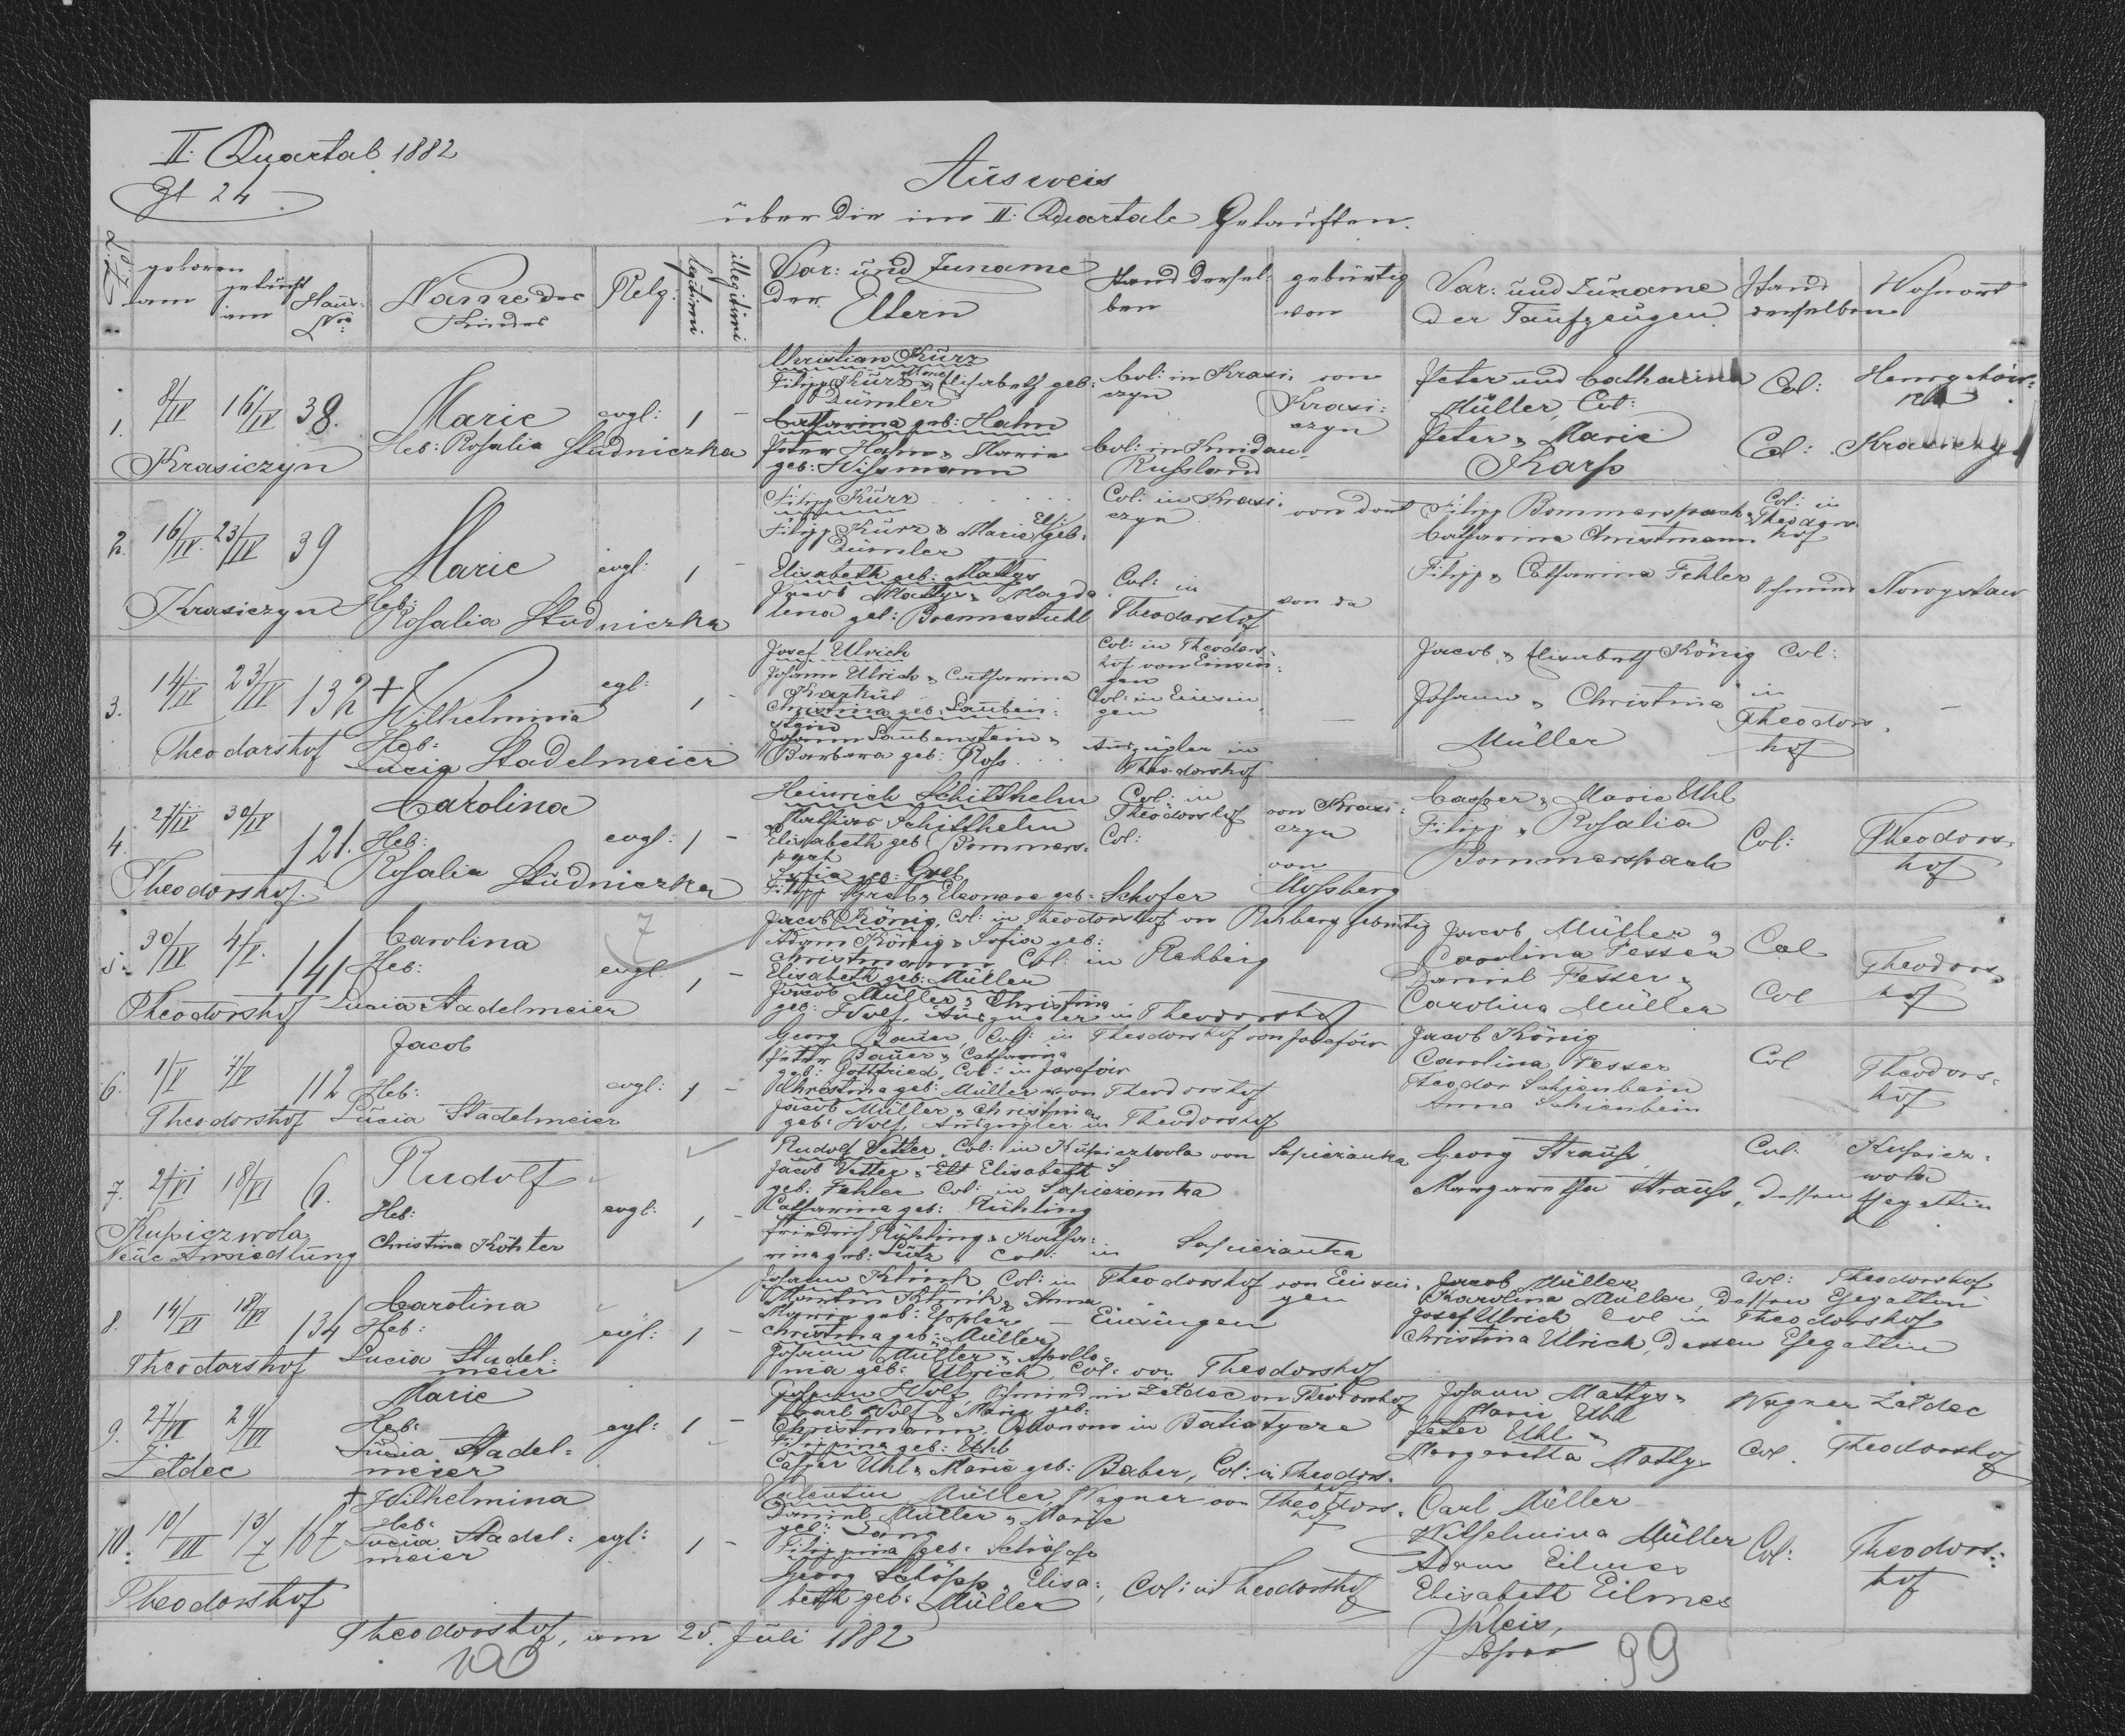 II. Quartal 1882
24
Ausweis
über die im II. Quartale Getauften.
geboren am
getauft am
Haus-Nro:
Name des Kindes
Relg:
legitimi
illegitimi
Vor: und Zuname der Eltern
Stand dersel-ben
gebürtig von
Vor: und Zuname der Taufzeugen
Stand derselben
Wohnort
1. 8/IV 16/IV 38. Marie evgl: 1 -
Krasiczyn
Heb: Rosalia Studniczka
Christian Kurz
Filipp Kurz & Marie Elisabeth geb:
Dümler
Catharina geb: Hahn
Peter Hahn & Marie
geb: Wissmann
Col: in Krasi-
czyn
Col: in
Russland
von
Krasi:
czyn
Peter und Catharina
Müller, Col:
Peter & Marie
Karp
Col:
Col: Krasiczyn
2. 16/IV. 23/IV 39 Marie evgl: 1 -
Krasiczyn Heb:
Rosalia Studniczka
Filipp Kurz
Filipp Kurz & Marie Els: geb:
Dümler
Elisabeth geb: Mattys
Jacob Mattys & Magda
lena geb: Brennestuhl
Col: in Krasi-
czyn
Col: in
Theodorshof
von dort
von da
Filipp Bommerspach &
Catharina Christmann
Filipp & Catharina Fehler
Col: in
Theodors-
hof
Schmied Nowystaw
3. 14/IV 23/IV 132 + Wilhelmina egl: 1 -
Theodorshof Heb:
Lucia Stadelmeier
Josef Ulrich
Johann Ulrich & Catharina
Christina geb: Lauben:
stein
Johann Laubenstein &
Barbara geb: Ross
Col: in Theodors-
hof von Einsin:
gen
Col: in Einsin
gen
Auszügler in
Theodorshof
Jacob & Elisabeth König Col:
Johann & Christina
Müller
in
Theodors.
hof
4. 27/IV 30/IV 121. Carolina evgl: 1 -
Heb:
Theodorshof. Rosalia Studniczka
Heinrich Schitthelm
Mathias Schitthelm
Elisabeth geb: Bommers:
pach
Sofia geb: Greb
Filipp Greb & Eleonora geb: Schofer
Col: in
Theodorshof
Col:
von Krasi:
czyn
von
Mossberg
Casper & Marie Uhl
Filipp & Rosalia
Bommerspach
Col:
Theodors-
hof
5. 30/IV 4/V. 141 Carolina evgl 1 -
7
Heb:
Theodorshof Lucia Stadelmeier
Jacob König, Col: in Theodorshof von Rehberg gebürtig
Adam König & Sofia geb:
Christmann Col: in Rehberg
Elisabeth geb: Müller
Jacob Müller & Christina
geb: Wolf, Auszügler in Theodorshof
Jacob Müller &
Carolina Fesser
Daniel Fesser &
Carolina Müller
Col
Col
Theodors-
hof
6. 1/V 7/V 112 Jacob evgl: 1 -
Heb:
Theodorshof Lucia Stadelmeier
Georg Bauer, Col: in Theodorshof von Josefów
Peter Bauer & Catharina
geb: Gottfried, Col: in Josefów
Christina geb: Müller von Theodorshof
Jacob Müller & Christina
geb: Wolf, Auszügler in Theodorshof
Jacob König
Carolina Fesser
Theodor Schienbein
Anna Schienbein
Col
Theodors-
hof
7. 2/VI 18/VI 6. Rudolf evgl: 1 -
Heb:
Kupiczwola
Neue Ansiedlung
Christina Köhler
Rudolf Vetter, Col: in Kupiczwola von Sapiezanka
Jacob Vetter & Elisabeth
geb: Fehler Col: in Sapiezanka
Catharina geb: Rühling
Friedrich Rühling & Katha:
rina geb: Lutz, Col: in Sapiezanka
Georg Strauss Col: Kupicz-
wola
Margaretha Strauss, dessen Ehegattin
8. 14/VI 18/VI 134 Carolina evgl: 1 -
Heb:
Theodorshof Lucia Stadel:
meier
Johann Klink Col: in Theodorshof von Einsin-
gen
Martin Klink & Anna
Maria geb: - Einsingen
Christina geb: Müller
Johann Müller & Apollo-
nia geb: Ulrich, Col: von Theodorshof
Jacob Müller Col: Theodorshof
Karolina Müller, dessen Ehegattin
Josef Ulrich Col in Theodorshof
Christina Ulrich, dessen Ehegattin
9. 27/VI 29/VI Marie egl: 1 -
Heb:
Zetdec Lucia Stadel=
meier
Johann Wolf, Schmied in Zetdec von Theodorshof
Carl Wolf & Marie geb:
Christmann, Oekonom in Batiatycze
Filippina geb: Uhl
Casper Uhl & Marie geb: Baber, Col: in Theodors-
Johann Mattys &
Marie Uhl
Peter Uhl &
Margaretha Mattys
Wagner Zetdec
Col. Theodorshof
10. 10/VII 13/7 167 + Wilhelmina egl: 1 -
Heb:
Lucia Stadel=
meier
Theodorshof
Valentin Müller, Wagner von Theodors-
hof
Daniel Müller & Marie
geb: Lang
Filippina geb:
Georg Schöpp & Elisa:
beth geb: Müller, Col: in Theodorshof
Carl Müller
Wilhelmina Müller
Adam Eilmes
Elisabeth Eilmes
Col:
Theodors-
hof
Theodorshof, am 25. Juli 1882
100
99